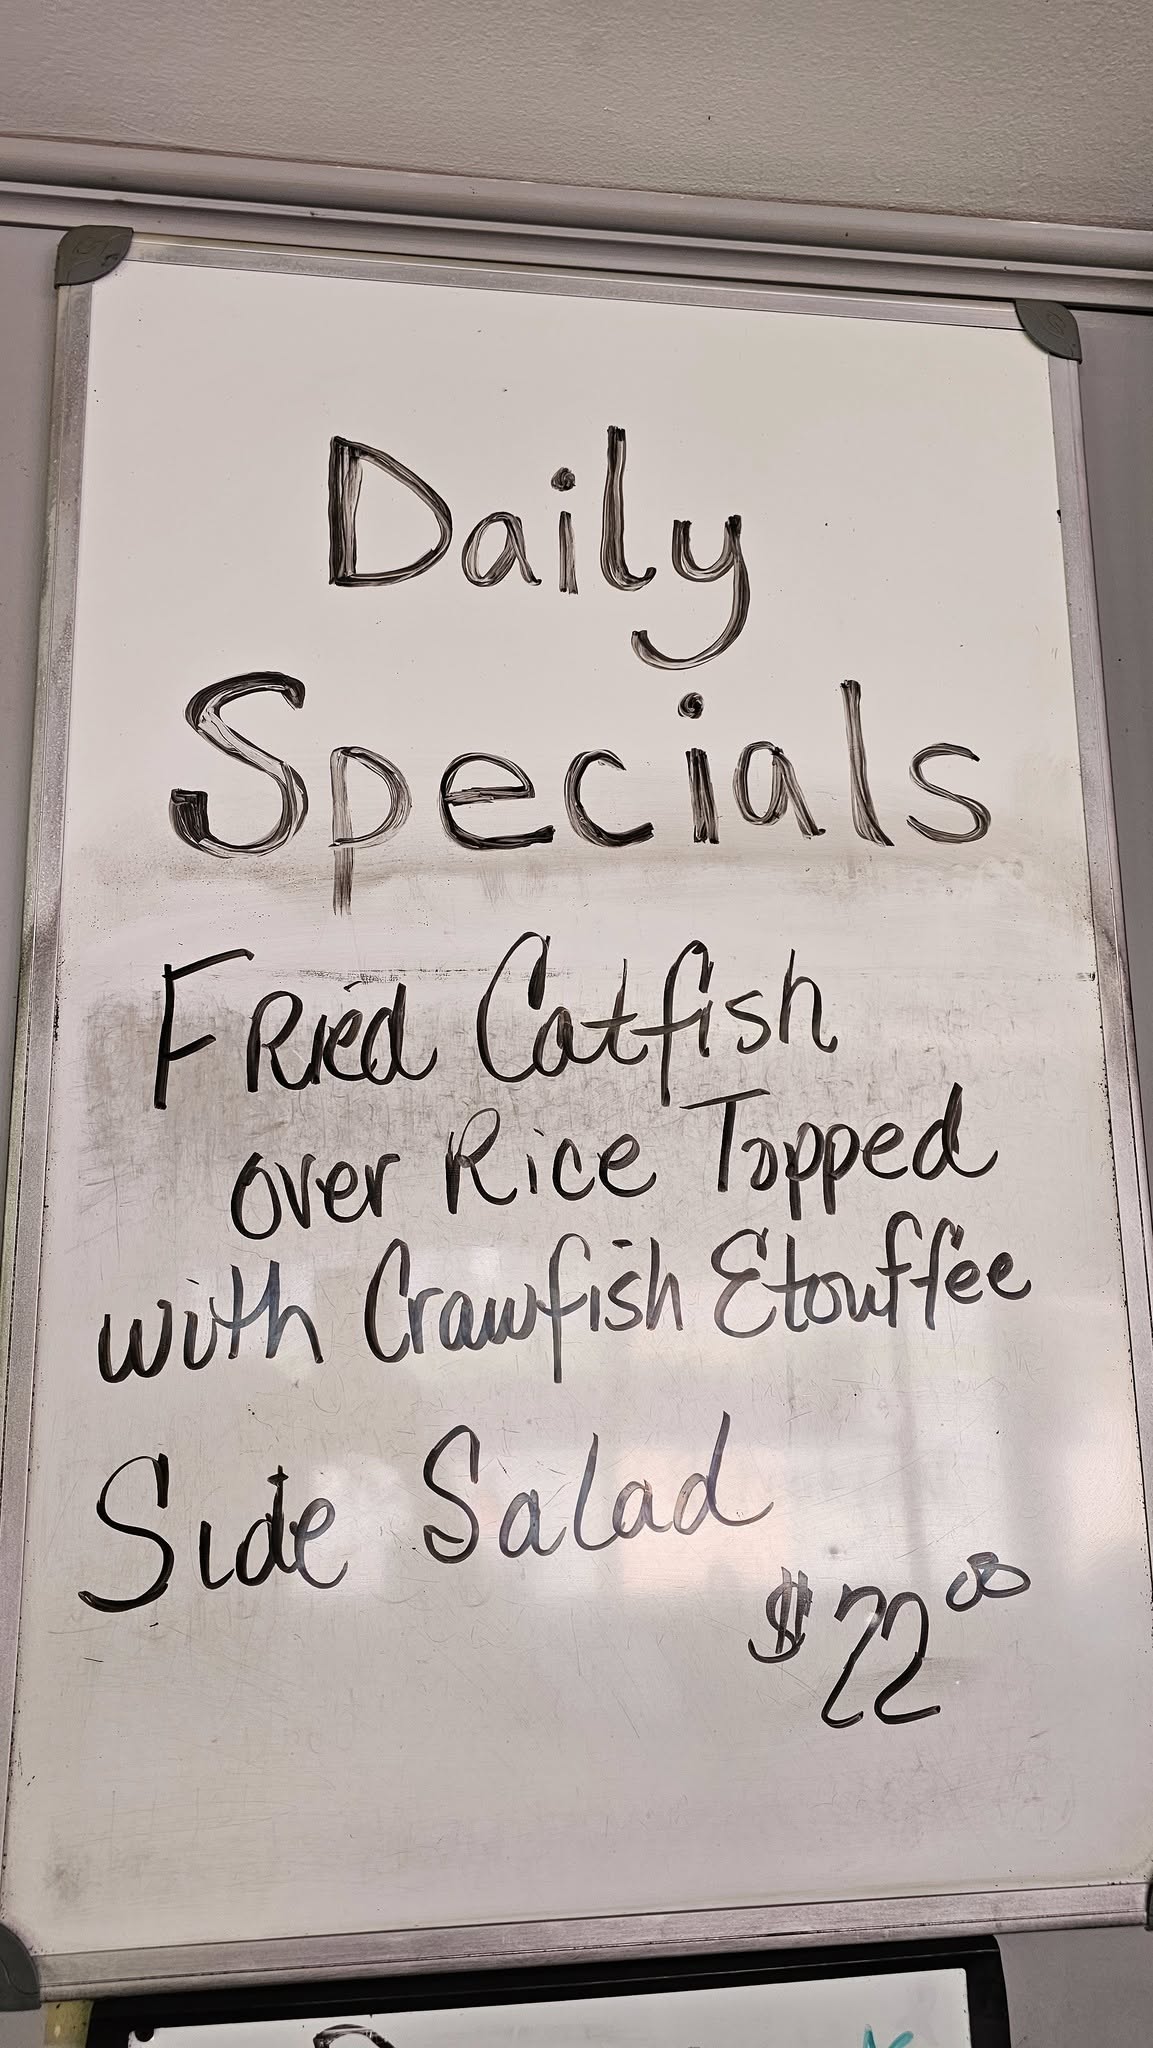 Daily
Specials
Fried Catfish
over Rice Topped
with Crawfish Etouffee
Side Salad
$22.00